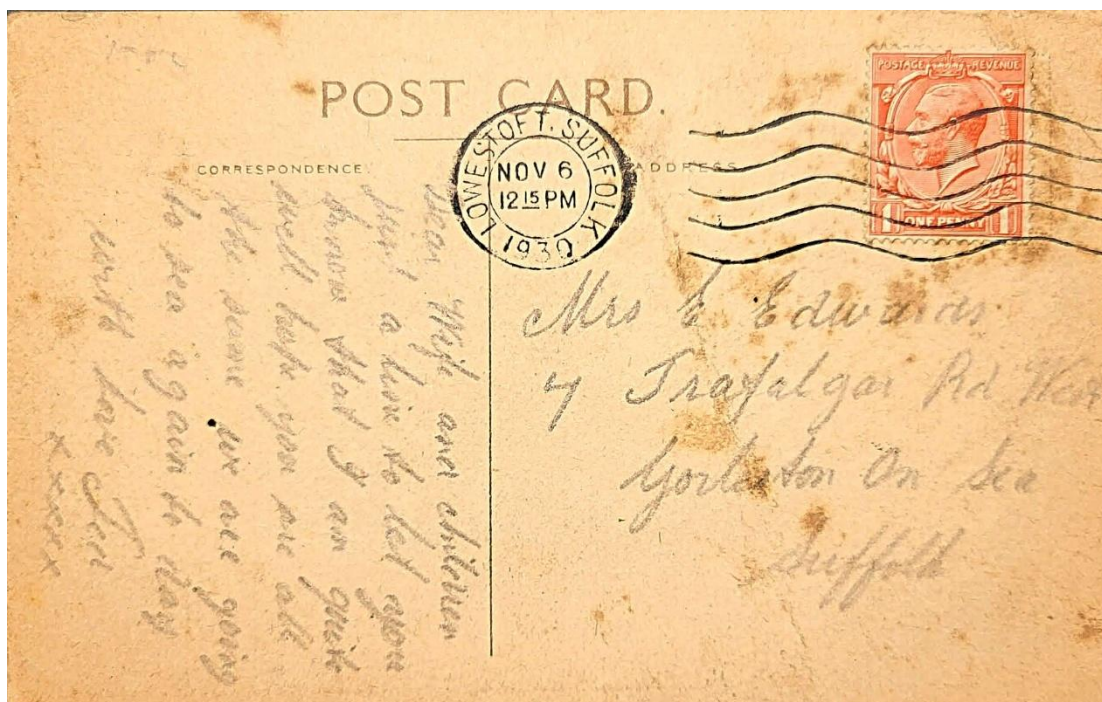 POST CARD.
CORRESPONDENCE
ADDRESS
LOWESTOFT. SUFFOLK
NOV 6
12 15 PM
1930
POSTAGE REVENUE
1 ONE PENNY 1
Dear Wife and children
Just a line to let you
know that I am quite
well hope you are all
the same we are going
to sea again to day
with love
xxxxxx
Mrs E Edwards
7 Trafalgar Rd
Gorleston On Sea
Suffolk